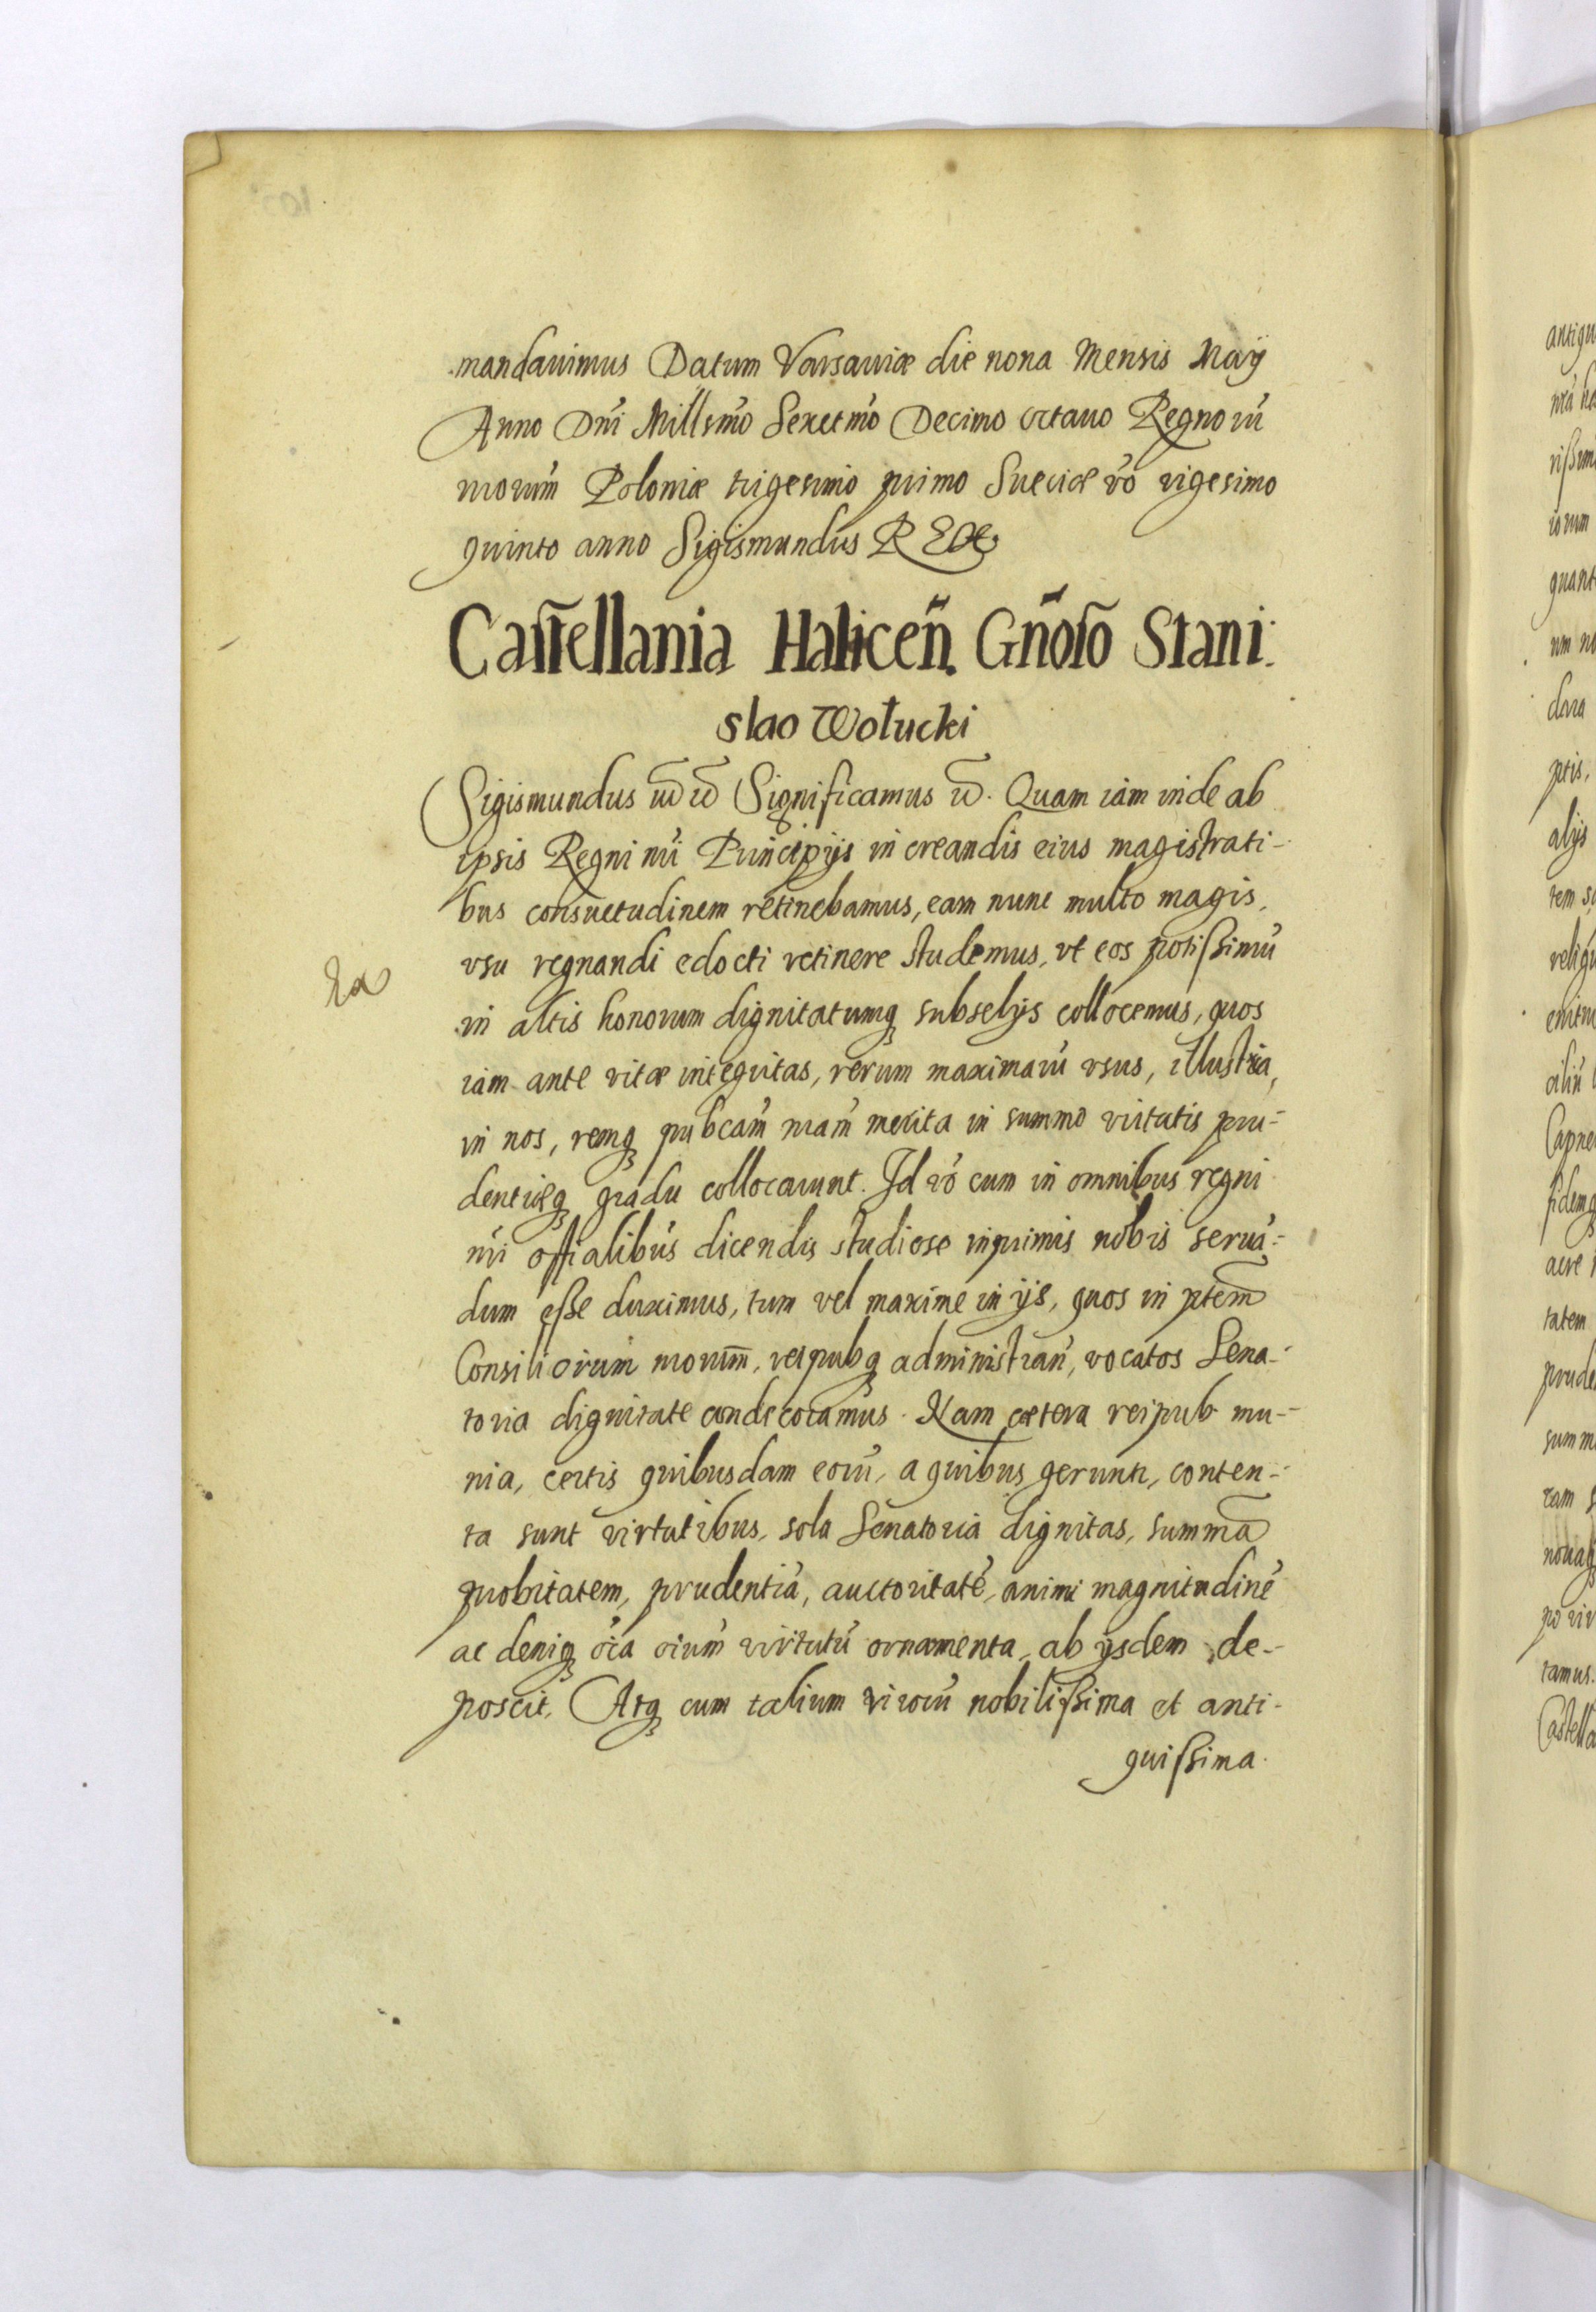 mandauimus Datum Varsauiæ die nona Mensis Maÿ
Anno Dni Millsmo Sexctmo Decimo octauo Regnorū
nrorum Poloniæ trigesimo primo Sueciæ vo vigesimo
quinto anno Sigismundus REX
Castellania Halicen. Gnoso Stani-
slao Wołucki
Sigismundus Significamus Quam iam inde ab
ipsis Regni nri Principijs in creandis eius magistrati-
bus consuetudinem retinebamus, eam nunc multo magis,
vsu regnandi edocti retinere studemus, vt eos potißimū
in altis honorum dignitatumq subselijs collocemus, quos
iam ante vitæ integritas, rerum maximarū vsus, illustria,
in nos, remq pubcam nram merita in summo virtutis pru-
dentiæq gradu collocarunt. Id vo cum in omnibus regni
nri offialibus dicendis studiose inprimis nobis seruā-
dum eße duximus, tum vel maxime in ijs, quos in ptem
Consiliorum nrorum, reipubq administran, vocatos Sena-
toria dignitate condecoramus. Nam cætera reipub mu-
nia, certis quibusdam eorū, a quibus geruntr, conten-
ta sunt virtutibus, sola Senatoria dignitas, summā
probitatem, prudentiā, auctoritatē, animi magnitudinē
ac deniq oia oium virtutū ornamenta, ab ijsdem de-
poscit, Atq cum talium virorū nobilißima et anti-
quißima.